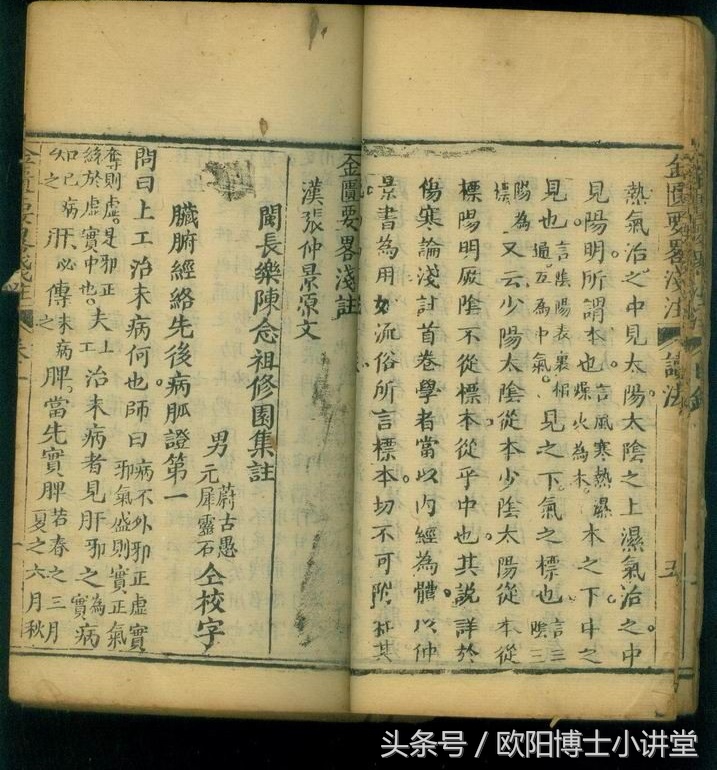 金匱要畧淺註 讀法 五
熱氣治之中見太陽太陰之上濕氣治之中
見陽明所謂本也言風寒熱濕燥火為本本之下中之
見也言陰陽表裏相通互為中氣見之下氣之標也言三陰三
陽為標又云少陽太陰從本少陰太陽從本從
標陽明厥陰不從標本從乎中也其說詳於
傷寒論淺註首卷學者當以內經為體以仲
景書為用如流俗所言標本切不可
金匱要畧淺註
漢張仲景原文
閩長樂陳念祖修園集註
男 元犀靈石 蔚古愚 仝校字
臟腑經絡先後病脈證第一
問曰上工治未病何也師曰病不外邪正虛實邪氣盛則實正氣
奪則虛是邪正虛實中也夫上工治未病者見肝邪之為實病
知已病之肝必傳未病之脾當先實脾若春之三月夏之六月秋
头条号 / 欧阳博士小讲堂